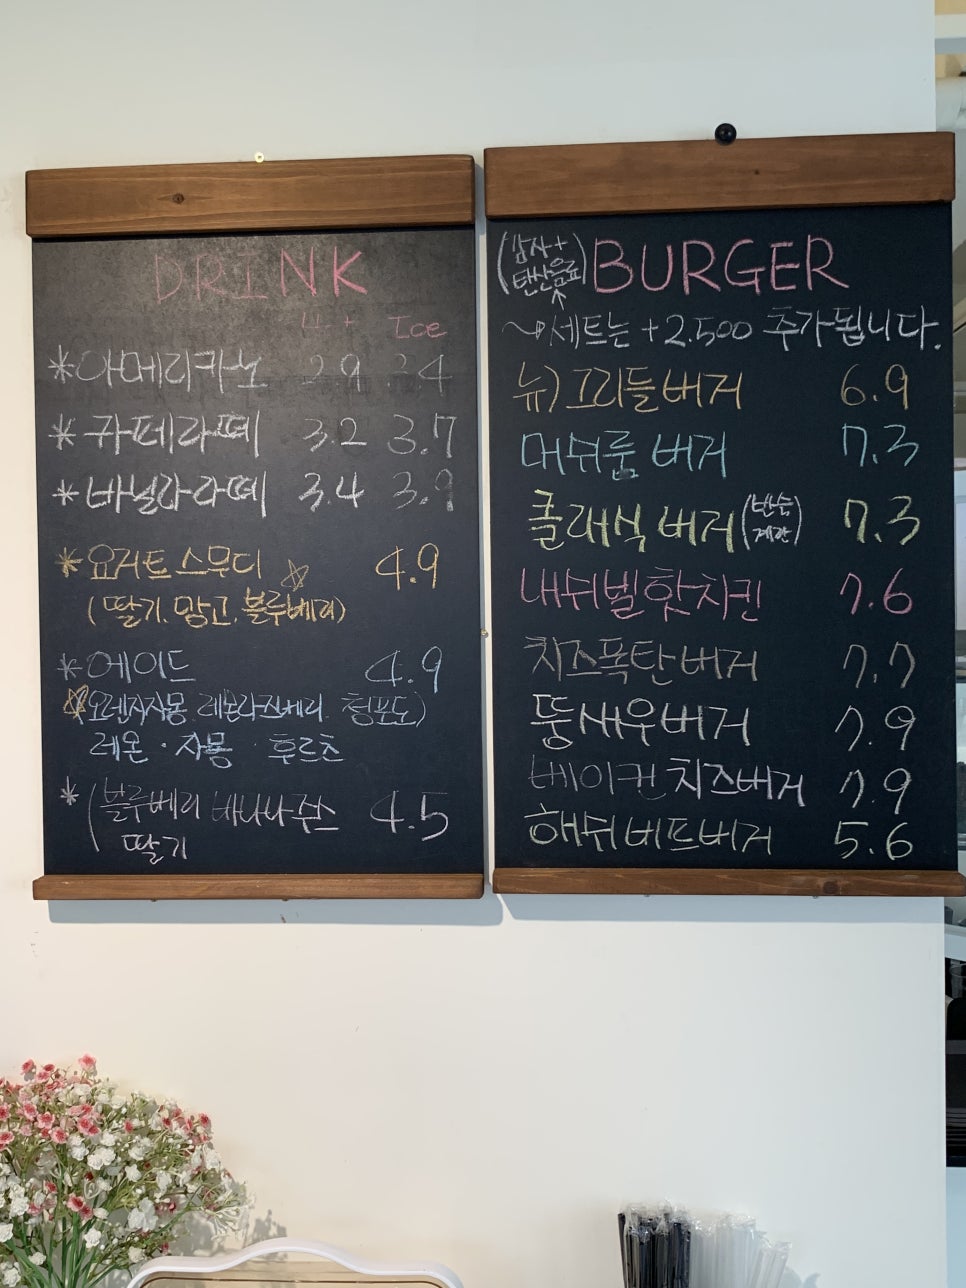 DRINK
Hot Ice
*아메리카노 2.9 3.4
*카페라떼 3.2 3.7
*바닐라라떼 3.4 3.9
*요거트 스무디 4.9
(딸기. 망고. 블루베리)
*에이드 4.9
오렌지자몽. 레몬라즈베리. 청포도)
레몬 · 자몽 · 후르츠
*(블루베리 바나나쥬스 4.5
딸기
(감자+
탄산음료)
BURGER
세트는 +2.500 추가됩니다.
뉴)그리들버거 6.9
머쉬룸 버거 7.3
클래식 버거(반숙
계란) 7.3
내쉬빌핫치킨 7.6
치즈폭탄버거 7.7
뚱새우버거 7.9
베이컨치즈버거 7.9
해쉬비프버거 5.6